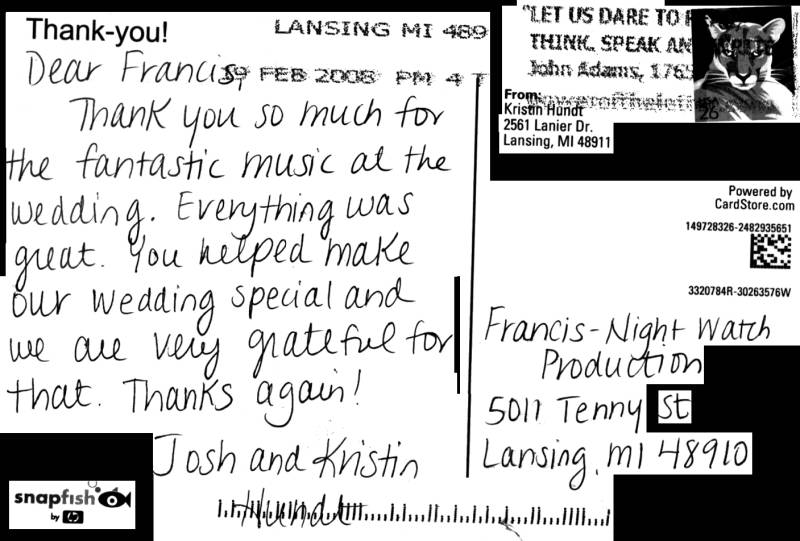 Thank-you!
LANSING MI 489
Dear Francis,
FEB 2008 PM 4 T
Thank you so much for
the fantastic music at the
wedding. Everything was
great. You helped make
our wedding special and
we are very grateful for
that. Thanks again!
Josh and Kristin
Hundt
snapfish
by hp
"LET US DARE TO
THINK, SPEAK AN
John Adams, 1765
26
From:
Kristin Hundt
2561 Lanier Dr.
Lansing, MI 48911
Powered by
CardStore.com
149728326-2482935651
3320784R-30263576W
Francis-Night Watch
Production
5011 Tenny St
Lansing, MI 48910